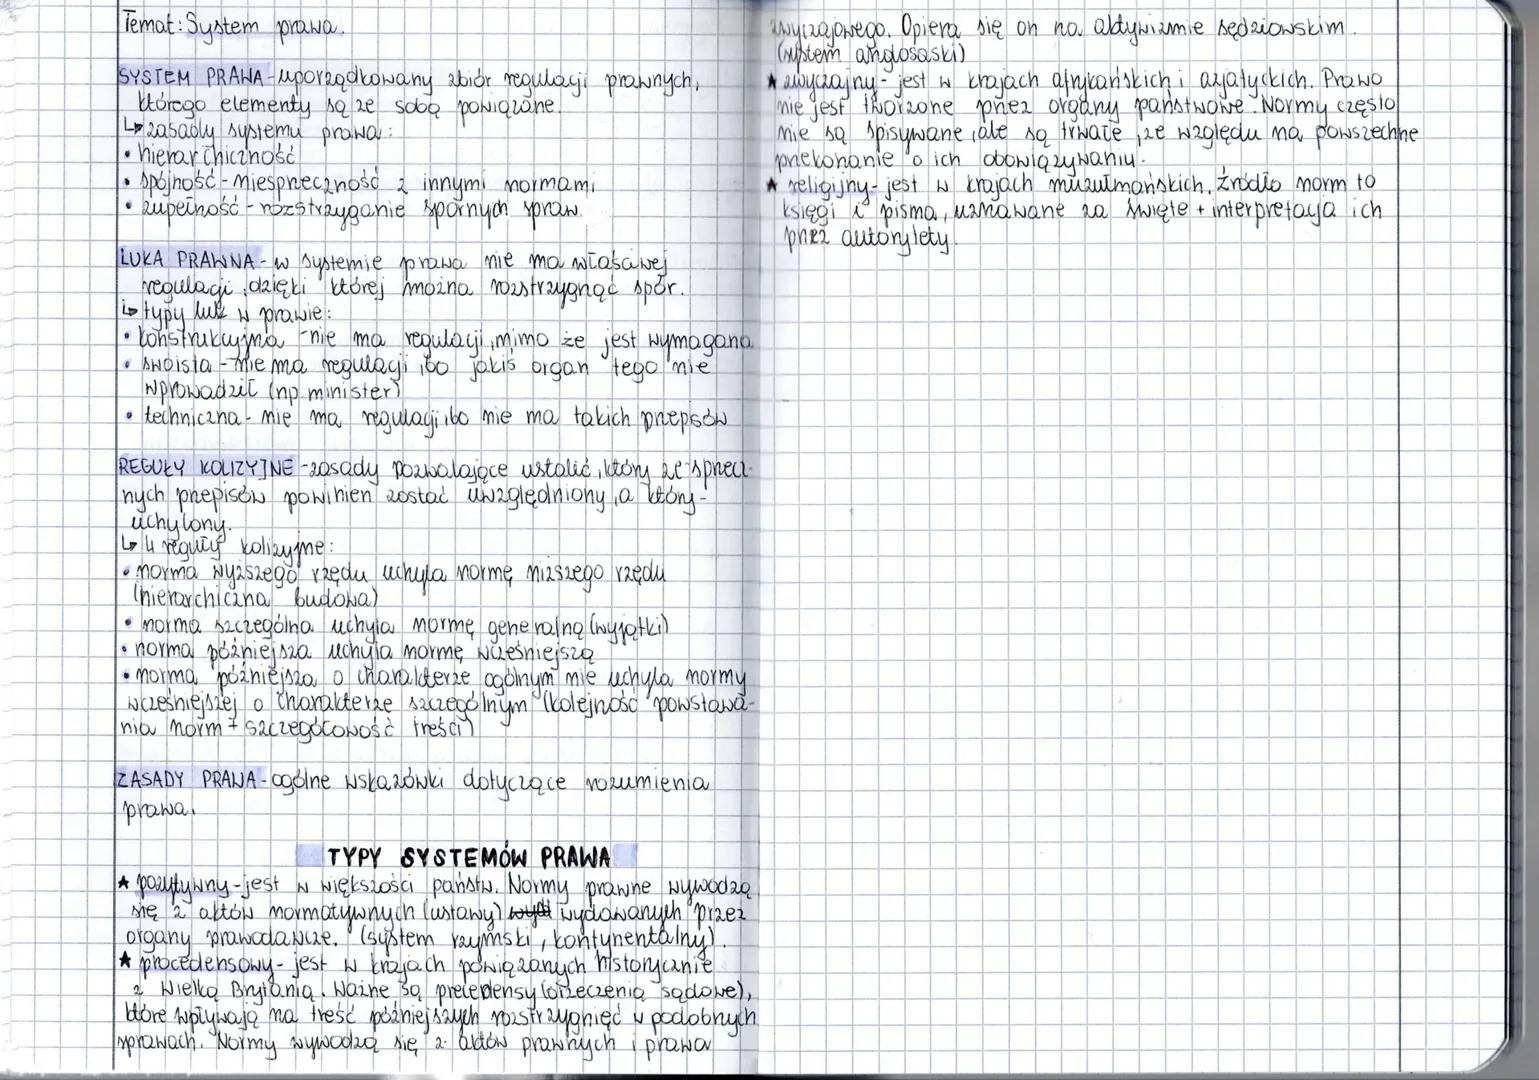 Temat: System prawa.
SYSTEM PRAWA - uporządkowany zbiór regulacji prawnych,
którego elementy są ze sobą powiązane.
↳ zasady systemu prawa:
• hierarchiczność
• spójność - niesprzeczność z innymi normami
• zupełność - rozstrzyganie spornych spraw
LUKA PRAWNA - w systemie prawa nie ma właściwej
regulacji, dzięki której można rozstrzygnąć spór.
↳ typy luk w prawie:
• konstrukcyjna - nie ma regulacji, mimo że jest wymagana
• swoista - nie ma regulacji, bo jakiś organ tego nie
wprowadził (np. minister)
• techniczna - nie ma regulacji, bo nie ma takich przepsów
REGUŁY KOLIZYJNE - zasady pozwalające ustalić, który ze sprzecz-
nych przepisów powinien zostać uwzględniony, a który -
uchylony.
↳ 4 reguły kolizyjne:
• norma wyższego rzędu uchyla normę niższego rzędu
(hierarchiczna budowa)
• norma szczególna uchyla normę generalną (wyjątki)
• norma późniejsza uchyla normę wcześniejszą
• norma późniejsza o charakterze ogólnym nie uchyla normy
wcześniejszej o charakterze szczególnym (kolejność powstawa-
nia norm + szczegółowość treści)
ZASADY PRAWA - ogólne wskazówki dotyczące rozumienia
prawa.
TYPY SYSTEMÓW PRAWA
★ pozytywny - jest w większości państw. Normy prawne wywodzą
się z aktów normatywnych (ustawy) wydawanych przez
organy prawodawcze. (system rzymski, kontynentalny).
★ procedensowy - jest w krajach powiązanych historycznie
z Wielką Brytanią. Ważne są precedensy (orzeczenia sądowe),
które wpływają na treść późniejszych rozstrzygnięć w podobnych
sprawach. Normy wywodzą się z aktów prawnych i prawa
zwyczajowego. Opiera się on na aktywizmie sędziowskim.
(system anglosaski)
★ zwyczajny - jest w krajach afrykańskich i azjatyckich. Prawo
nie jest tworzone przez organy państwowe. Normy często
nie są spisywane, ale są trwałe, ze względu na powszechne
przekonanie o ich obowiązywaniu.
★ religijny - jest w krajach muzułmańskich. Źródło norm to
księgi i pisma, uznawane za święte + interpretacja ich
przez autorytety.